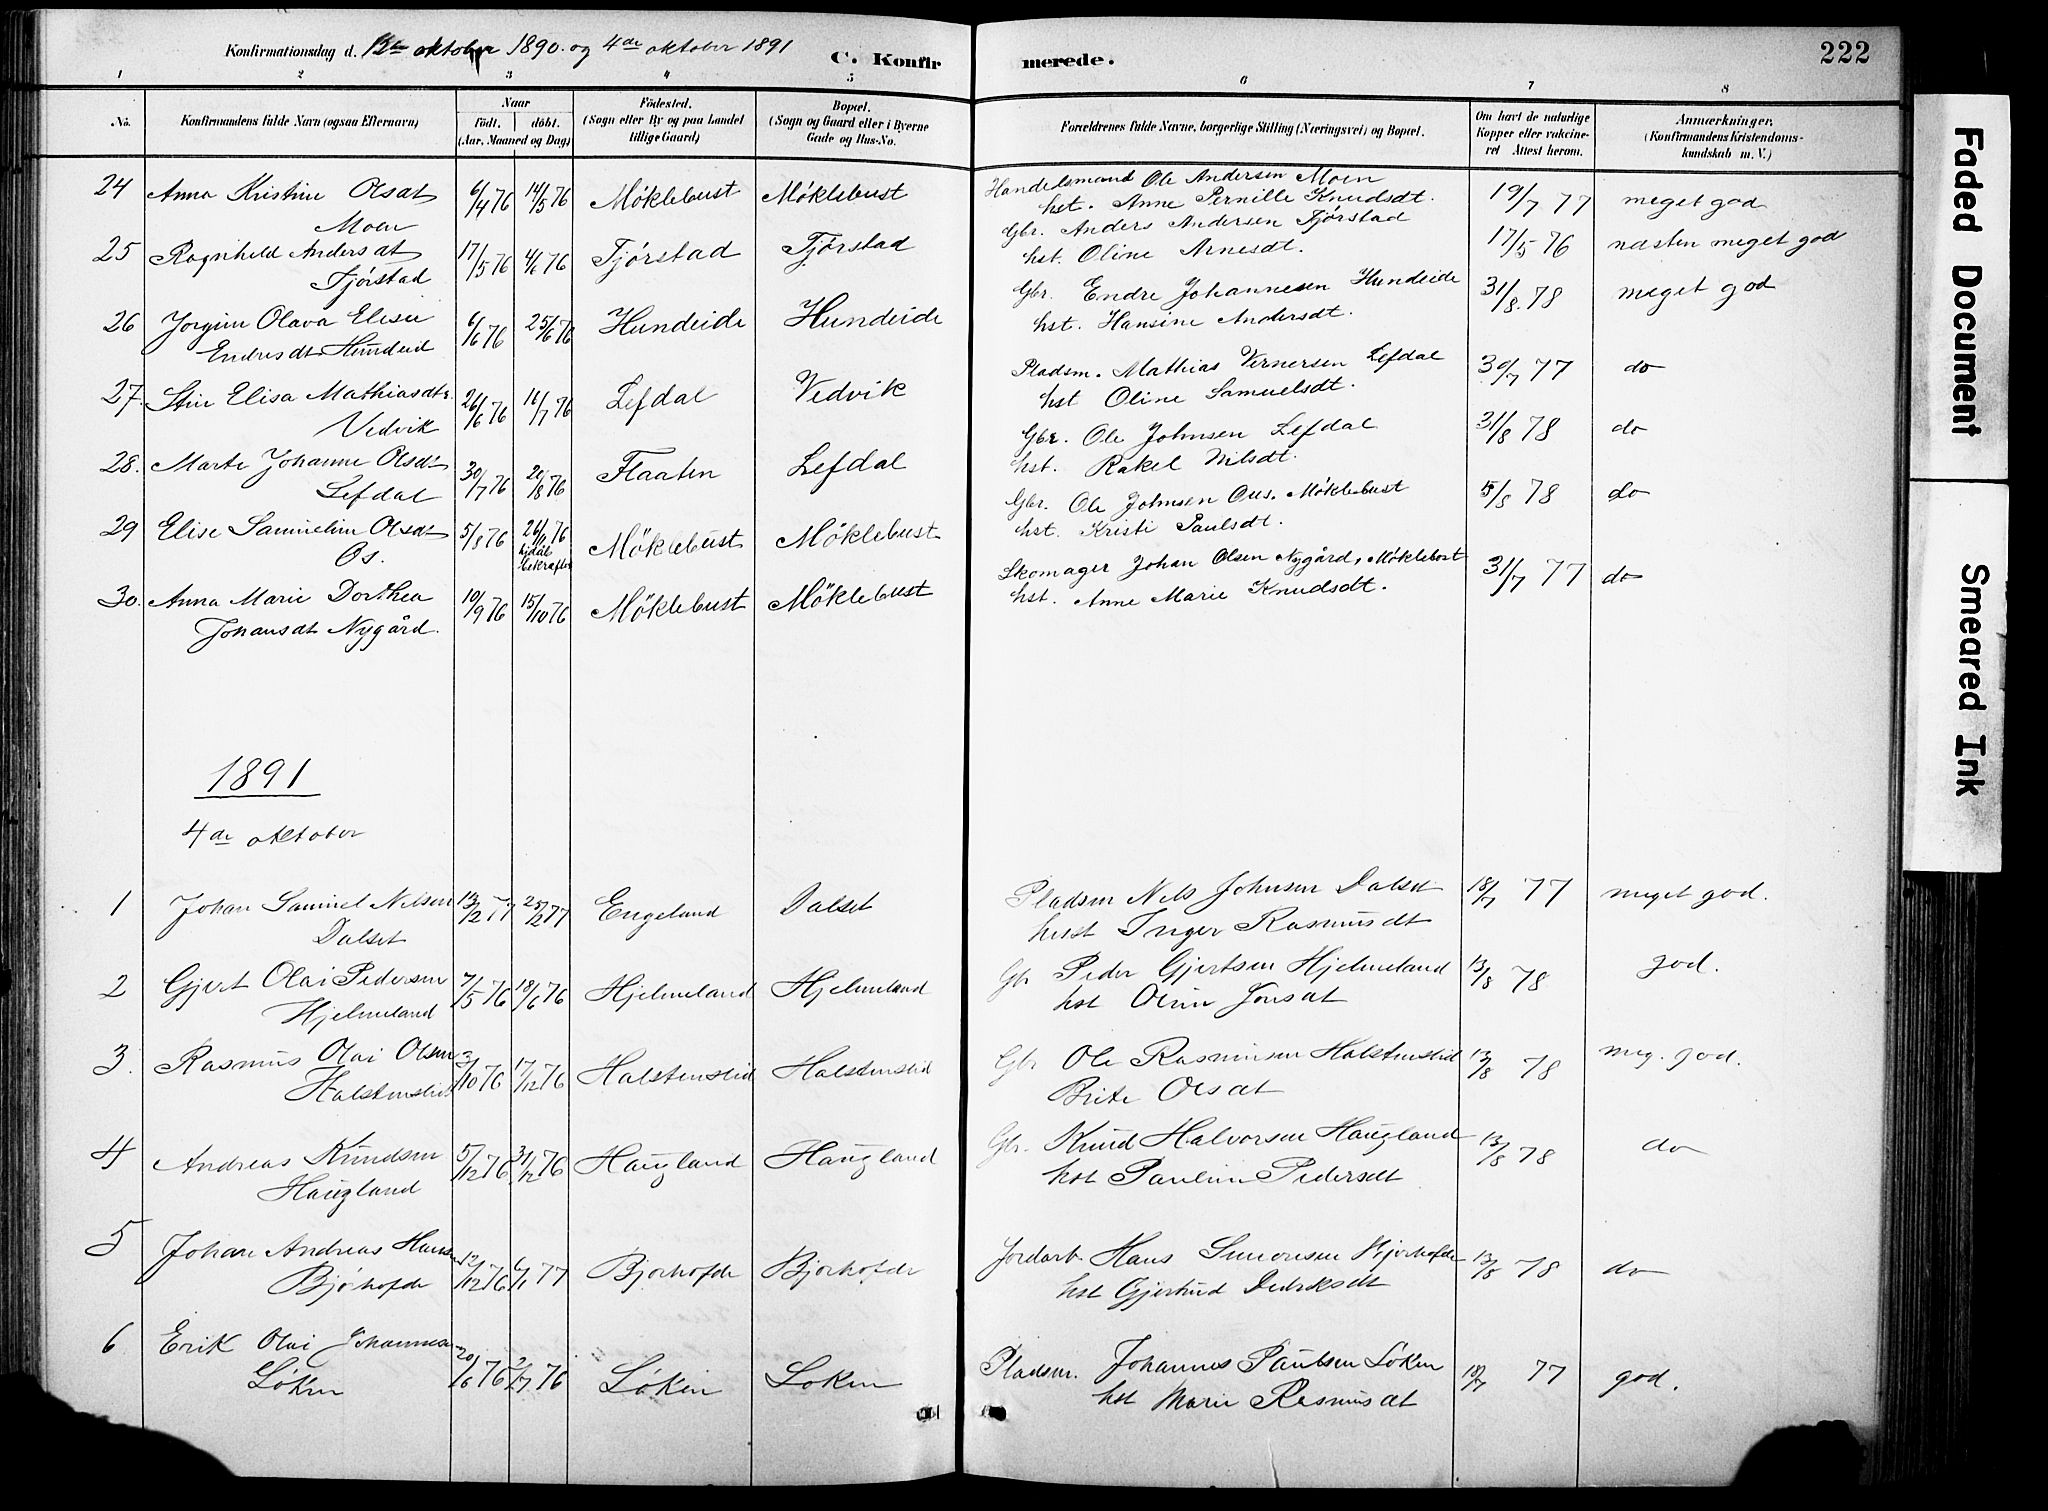 Konfirmationsdag d. 12te oktober 1890 og 4de oktober 1891
C. Konfir merede.
222
1 2 3 4 5 6 7 8
No. Konfirmandens fulde Navn (ogsaa Efternavn) Naar født. døbt. (Aar, Maaned og Dag) Fødested. (Sogn eller By og paa Landet tillige Gaard) Bopæl. (Sogn og Gaard eller i Byerne Gade og Hus-No. Forældrenes fulde Navne, borgerlige Stilling (Næringsvei) og Bopæl. Om havt de naturlige Kopper eller vakcineret Attest herom. Anmærkninger, (Konfirmandens Kristendomskundskab m. V.)
24 Anna Kristine Olsdt 6/4 76 14/5 76 Møklebust Møklebust Handelsmand Ole Andersen Moen 19/7 77 meget god
Moen hst. Anne Pernille Knudsdt.
25 Ragnhild Andersdt 17/5 76 4/6 76 Tjørstad Tjørstad Gbr. Anders Andersen Tjørstad 17/5 76 næsten meget god
Tjørstad hst. Oline Arnesdt.
26 Jorgine Olava Elisie 6/6 76 25/6 76 Hundeide Hundeide Gbr. Endre Johannesen Hundeide 31/8. 78 meget god
Endresdt Hundeid hst. Hansine Andersdt.
27. Stine Elisa Mathiasdtr. 26/6 76 16/7 76 Lefdal Vedvik Pladsm. Mathias Vernersen Lefdal 30/7 77 do
Vedvik hst Oline Samuelsdt.
28. Marte Johanne Olsdt 30/7 76 20/8 76 Flaaten Lefdal Gbr. Ole Johnsen Lefdal 31/8 78 do
Lefdal hst. Rakel Nilsdt.
29 Elise Samueline Olsdt 5/8 76 76 Møklebust Møklebust Gbr. Ole Johnsen Møklebust 5/8 78 do
Os. hst. Kristi Paulsdt.
30. Anna Marie Dorthea 10/9 76 15/10 76 Møklebust Møklebust Skomager Johan Olsen Nygård, Møklebost 31/7 77 do
Johansdt Nygård. hst. Anne Marie Knudsdt.
1891
4de oktober
1 Johan Samuel Nilsen 13/2 77 25/2 77 Engeland Dalset Pladsm Nels Johnsen Dalset 18/7 77 meget god.
Dalset hust Inger Rasmusdt
2 Gjert Olai Pedersen 7/5 76 18/6 76 Hjelmeland Hjelmeland Gbr Peder Gjertsen Hjelmeland 13/8 78 god.
Hjelmeland hst Oline Jonsdt
3. Rasmus Olai Olsen 3/10 76 17/12 76 Halstenslid Halstenslid Gbr Ole Rasmussen Halstenslid 13/8 78 meg. god.
Halstenslid Brite Olsdt
4 Andreas Knudsen 5/12 76 31/12 76 Haugland Haugland Gbr. Knud Halvorsen Haugland 13/8 78 do
Haugland hst Pauline Pedersdt
5 Johan Andreas Hansen 12/12 76 6/1 77 Bjorhofde Bjorhofde Jordarb. Hans Simonsen Bjorhofde 13/8 78 do
Bjørhofde hst Gjertrud Didriksdt
6 Erik Olai Johannesen 20/6 76 2/7 76 Løken Løken Pladsm. Johannes Paulsen Løken 18/7 77 god.
Løken hst Marie Rasmusdt
Faded Document
Smeared Ink